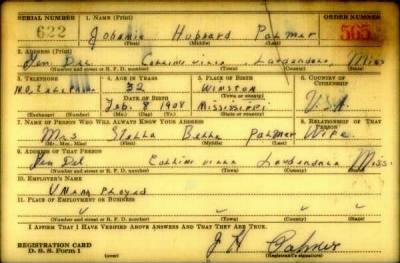 SERIAL NUMBER 1. NAME (Print) ORDER NUMBER
622 Johnnie Hubbard Palmer 565
(First) (Middle) (Last)
2. ADDRESS (Print)
Collinsville Lauderdale Miss
(Number and street or R. F. D. number) (Town) (County) (State)
3. TELEPHONE 4. AGE IN YEARS 5. PLACE OF BIRTH 6. COUNTRY OF CITIZENSHIP
32 WINSTON
DATE OF BIRTH (Town or county)
Feb. 8 1908 Mississippi U.S.A
(Exchange) (Number) (Mo.) (Day) (Yr.) (State or country)
7. NAME OF PERSON WHO WILL ALWAYS KNOW YOUR ADDRESS 8. RELATIONSHIP OF THAT PERSON
Mrs Stella Belle Palmer Wife
(Mr., Mrs., Miss) (First) (Middle) (Last)
9. ADDRESS OF THAT PERSON
Collinsville Lauderdale Miss.
(Number and street or R. F. D. number) (Town) (County) (State)
10. EMPLOYER'S NAME
11. PLACE OF EMPLOYMENT OR BUSINESS
(Number and street or R. F. D. number) (Town) (County) (State)
I AFFIRM THAT I HAVE VERIFIED ABOVE ANSWERS AND THAT THEY ARE TRUE.
REGISTRATION CARD J H Palmer
D. S. S. Form 1 (over) (Registrant's signature)